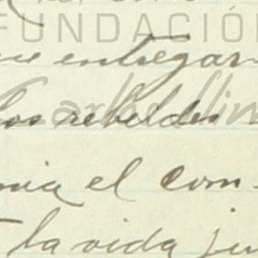 FUNDACIÓ
entregar
los rebeldes
el com-
la vida ju